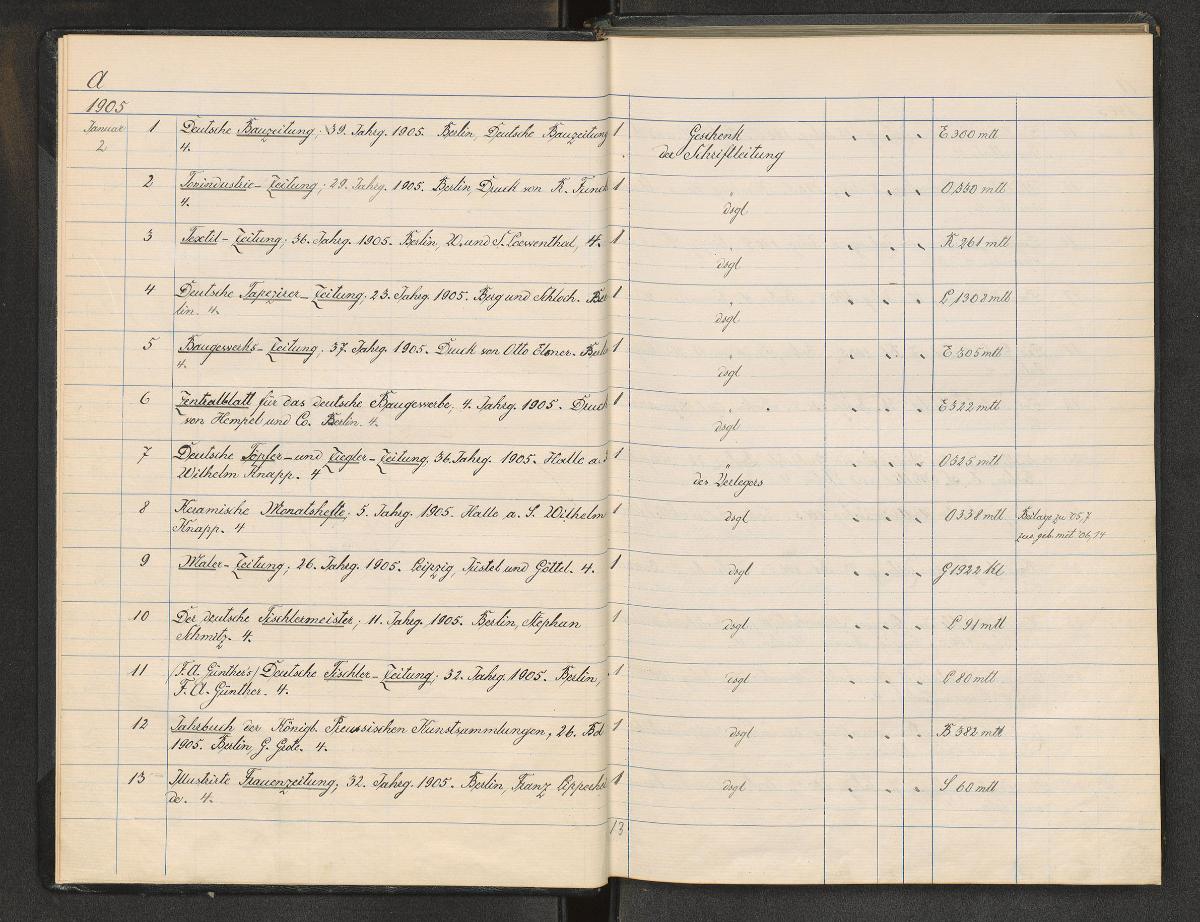 a
1905
Januar 1 Deutsche Bauzeitung; 39. Jahrg. 1905. Berlin, Deutsche Bauzeitung 1 Geschenk E 300 mtl
2 4. der Schriftleitung
2 Tonindustrie-Zeitung; 29. Jahrg. 1905. Berlin, Druck von R. Funck 1 " O 330 mtl
4. dsgl
3 Textil-Zeitung; 36. Jahrg. 1905. Berlin, W. und S. Loewenthal, 4. 1 " K 261 mtl
dsgl
4 Deutsche Tapezirer-Zeitung; 23. Jahrg. 1905. Berg und Schoch. Ber 1 " L 1308 mtl
lin. 4. dsgl
5 Baugewerks-Zeitung; 37. Jahrg. 1905. Druck von Otto Elsner. Berlin 1 " E 305 mtl
4. dsgl
6 Zentralblatt für das deutsche Baugewerbe; 4. Jahrg. 1905. Druck 1 " E 322 mtl
von Hempel und Co. Berlin. 4. dsgl
7 Deutsche Töpfer- und Ziegler-Zeitung, 36. Jahrg. 1905. Halle a. S 1 " O 325 mtl
Wilhelm Knapp. 4 des Verlegers
8 Keramische Monatshefte; 5. Jahrg. 1905. Halle a. S. Wilhelm 1 dsgl O 338 mtl Beilage zu '05,7
Knapp. 4 zus. geb. mit '06,14
9 Maler-Zeitung; 26. Jahrg. 1905. Leipzig, Jüstel und Göttel. 4. 1 dsgl G 1922 kl
10 Der deutsche Tischlermeister; 11. Jahrg. 1905. Berlin, Stephan 1 dsgl L 91 mtl
Schmitz. 4.
11 (F. A. Günther's) Deutsche Tischler-Zeitung; 32. Jahrg. 1905. Berlin, 1 dsgl L 80 mtl
F. A. Günther. 4.
12 Jahrbuch der Königl. Preussischen Kunstsammlungen, 26. Bd 1 dsgl B 382 mtl
1905. Berlin, G. Grote. 4.
13 Illustrirte Frauenzeitung; 32. Jahrg. 1905. Berlin, Franz Lipperhei 1 dsgl S 60 mtl
de. 4.
13